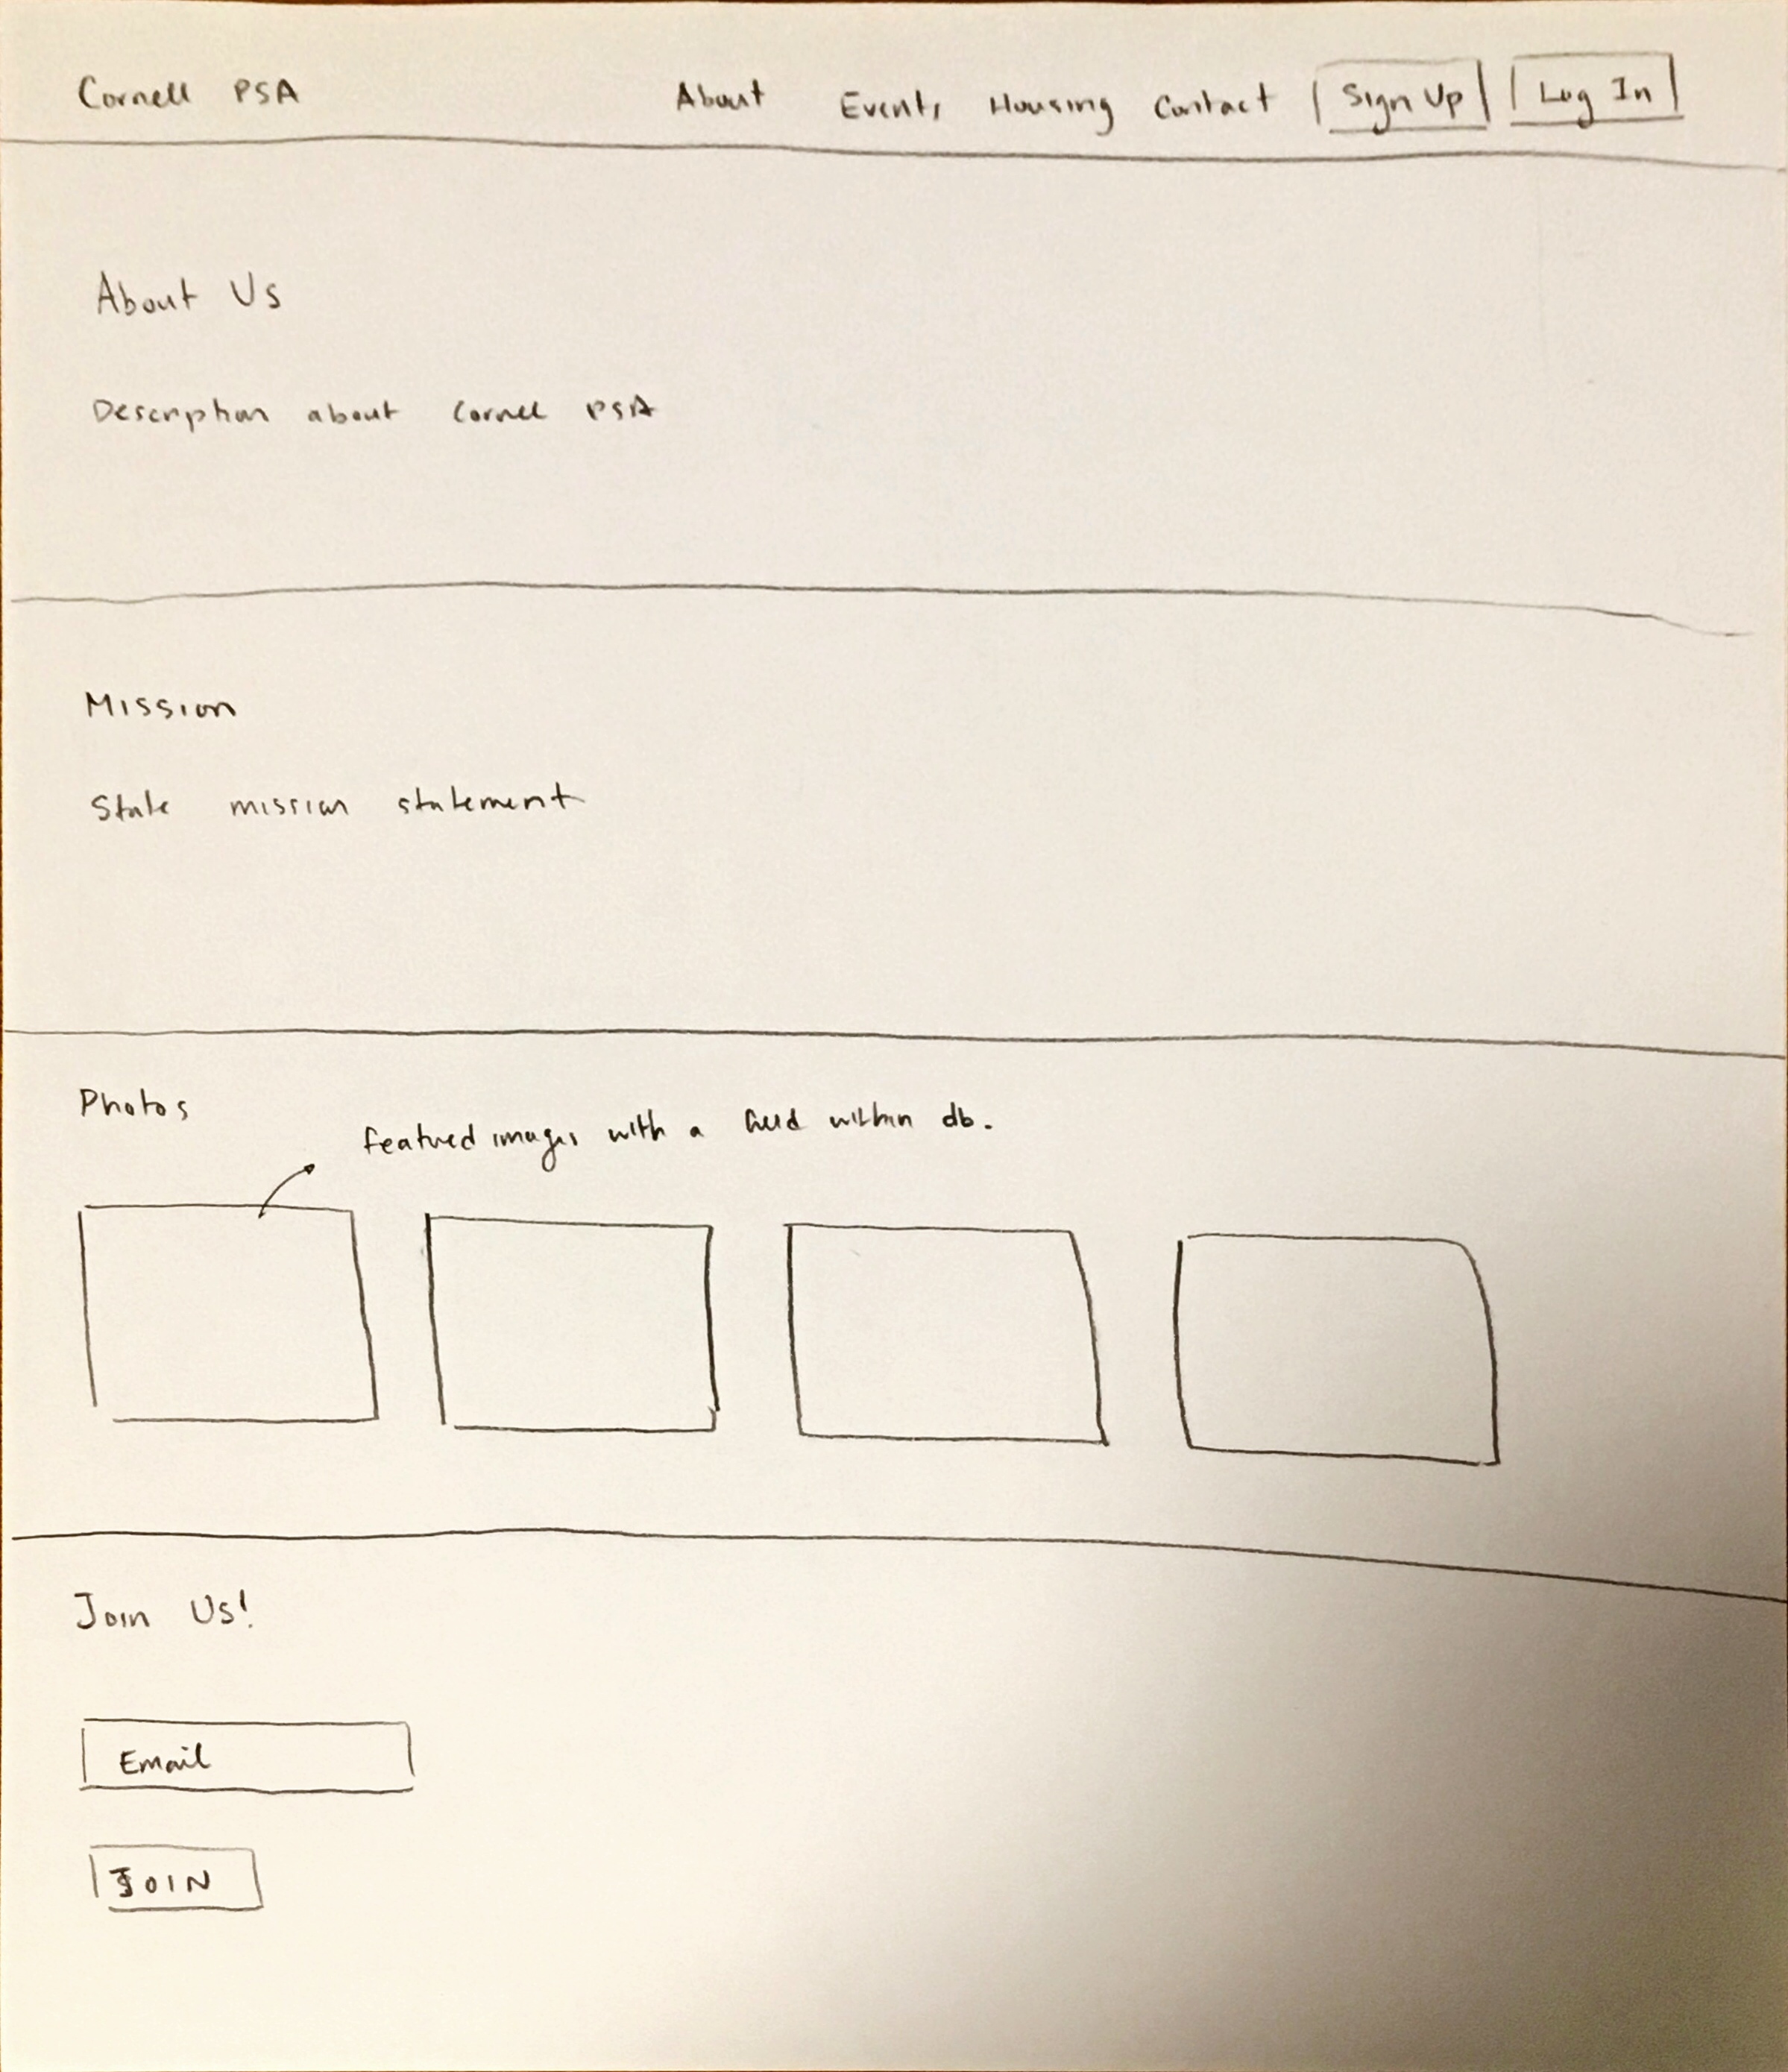 Cornell PSA About Events Housing Contact Sign Up Log In
About Us
Description about Cornell PSA
Mission
State mission statement
Photos
featured images with a field within db.
Join Us!
Email
JOIN